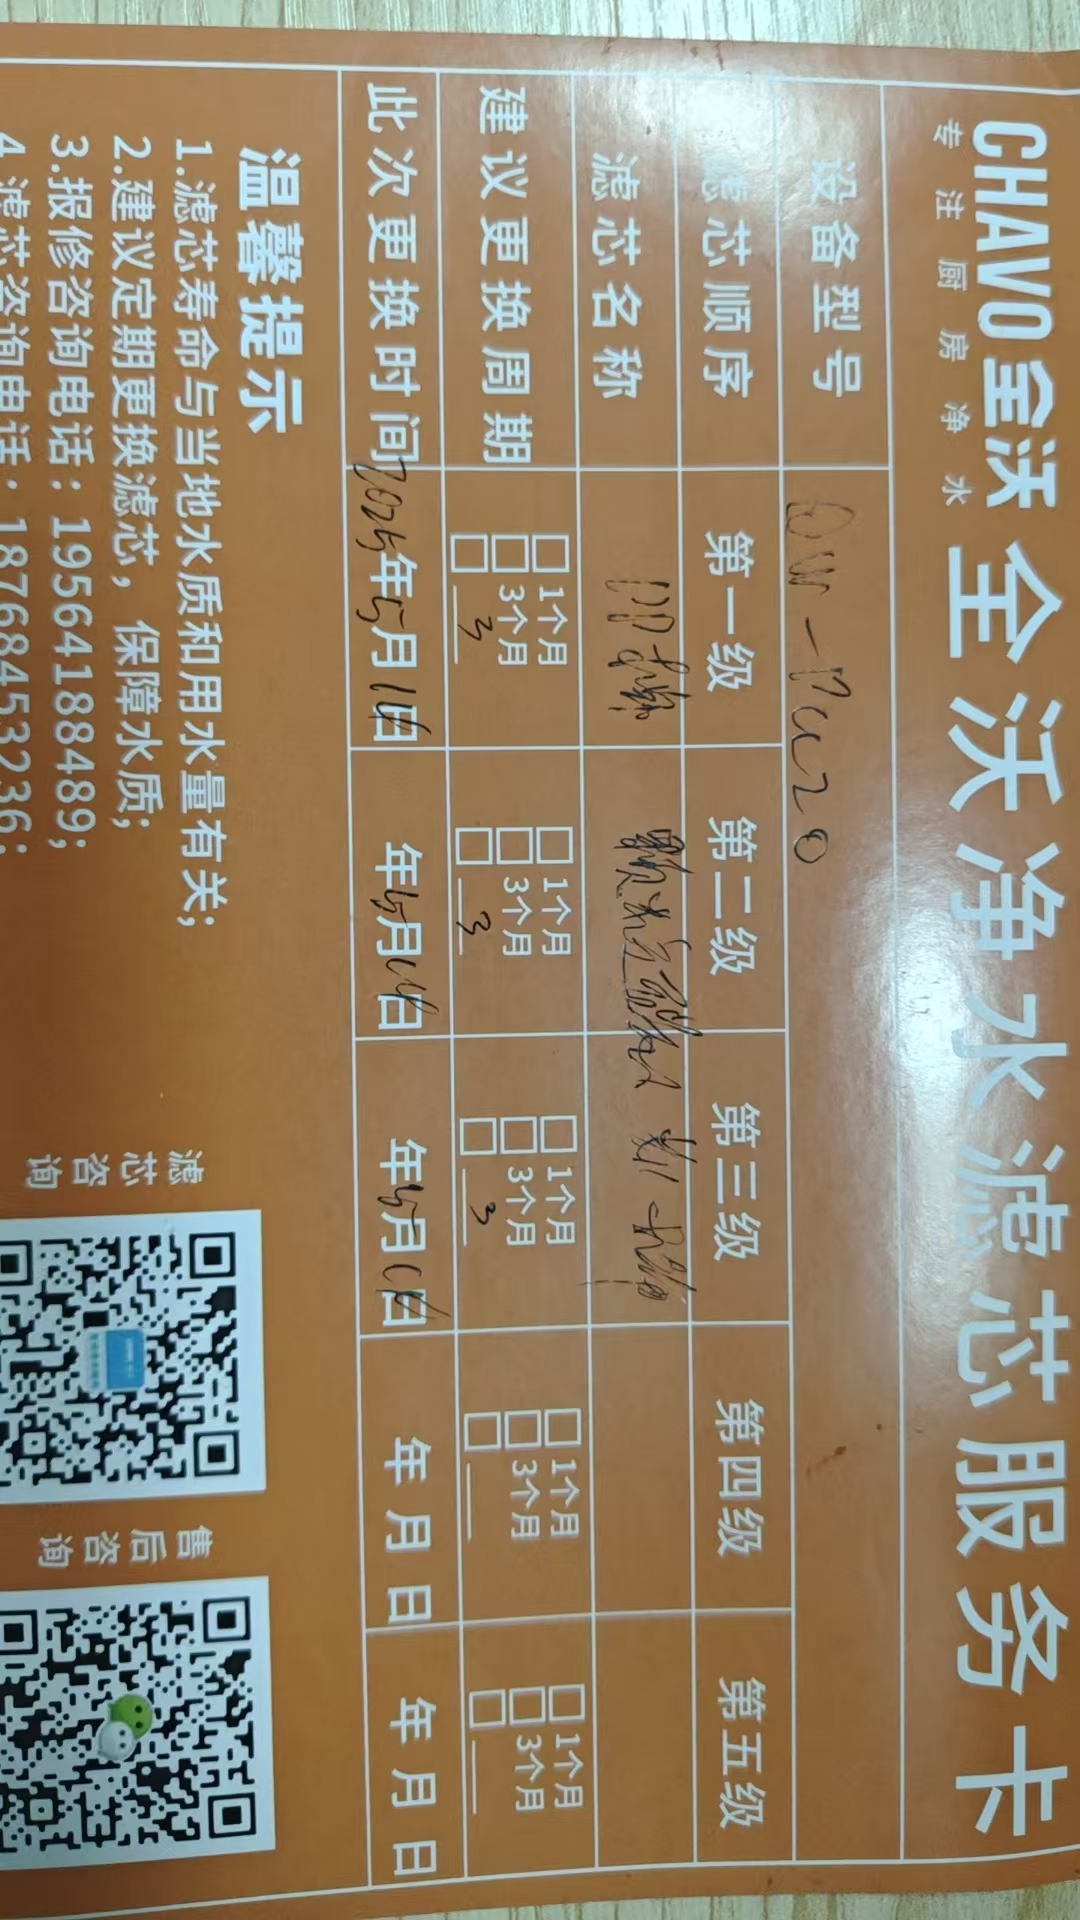 CHAVO全沃 全沃净水滤芯服务卡
专注厨房净水
设备型号
滤芯顺序 第一级 第二级 第三级 第四级 第五级
滤芯名称
建议更换周期 1个月 3个月 3 1个月 3个月 3 1个月 3个月 3 1个月 3个月 1个月 3个月
此次更换时间 2025年5月 日 年5月 日 年5月 日 年 月 日 年 月 日
温馨提示
1.滤芯寿命与当地水质和用水量有关;
2.建议定期更换滤芯，保障水质;
3.报修咨询电话：19564188489;
4.滤芯咨询电话：18768453236;
滤芯咨询
售后咨询